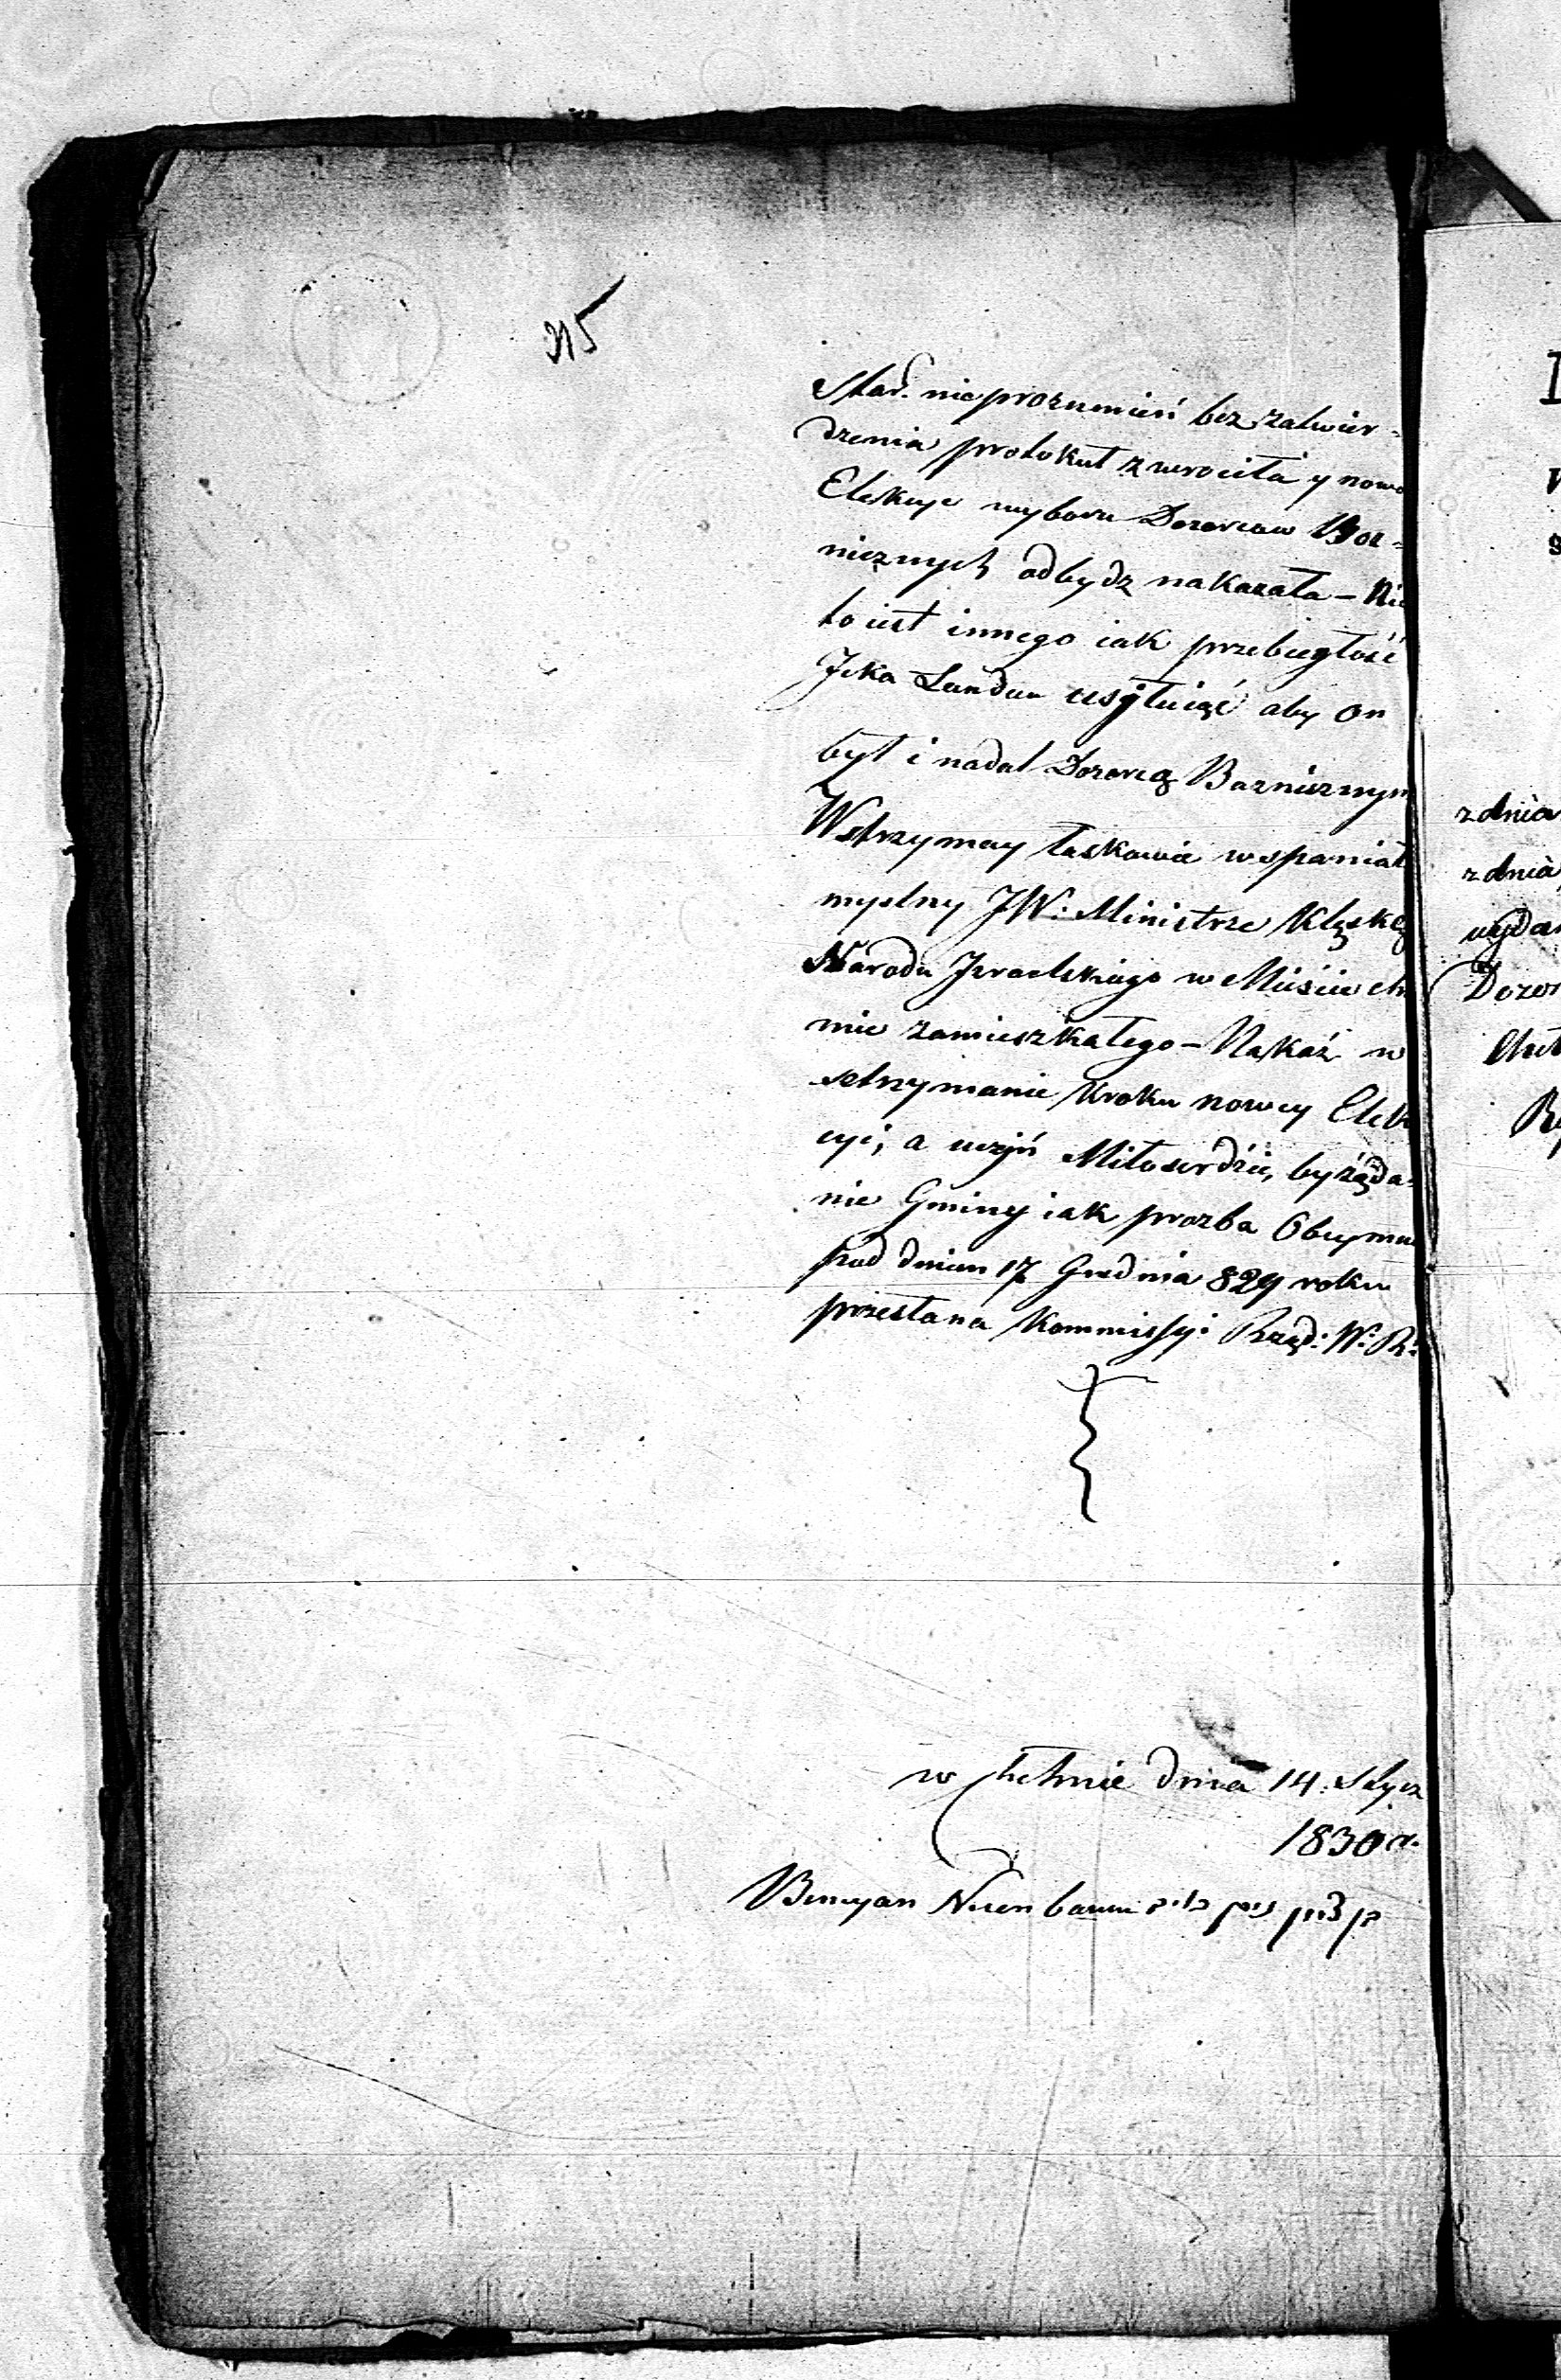 315
Star. nieprozumień bez zatwier-
dzenia protokuł zwrociła y nowo
Elekcye wyboru Dozorcow Boz-
nicznych odbydz nakazała – Nic
to iest innego iak przebiegłość
Icka Landau usyłuiąć aby on
był i nadal Dozorcą Bozniczny
Wstrzymay łaskawie wspaniał
myslny JW: Ministrze Klęskę
Narodu Izraelskiego w Mieście Che
mie zamieszkałego – Nakaż w
strzymanie kroku nowey Elek
cyi, a uczyń Miłoserdzie, by żąda-
nie Gminy iak prozba Obeymu
pod dniem 17 Grudnia 829 roku
przesłana Kommissyi Rząd: W: R:
w Chełmie dnia 14. Stycz
1830 r.
Bencyan Nirenbaum בן ציון
zdnia
zdnia
wydan
Dozor
Cheł